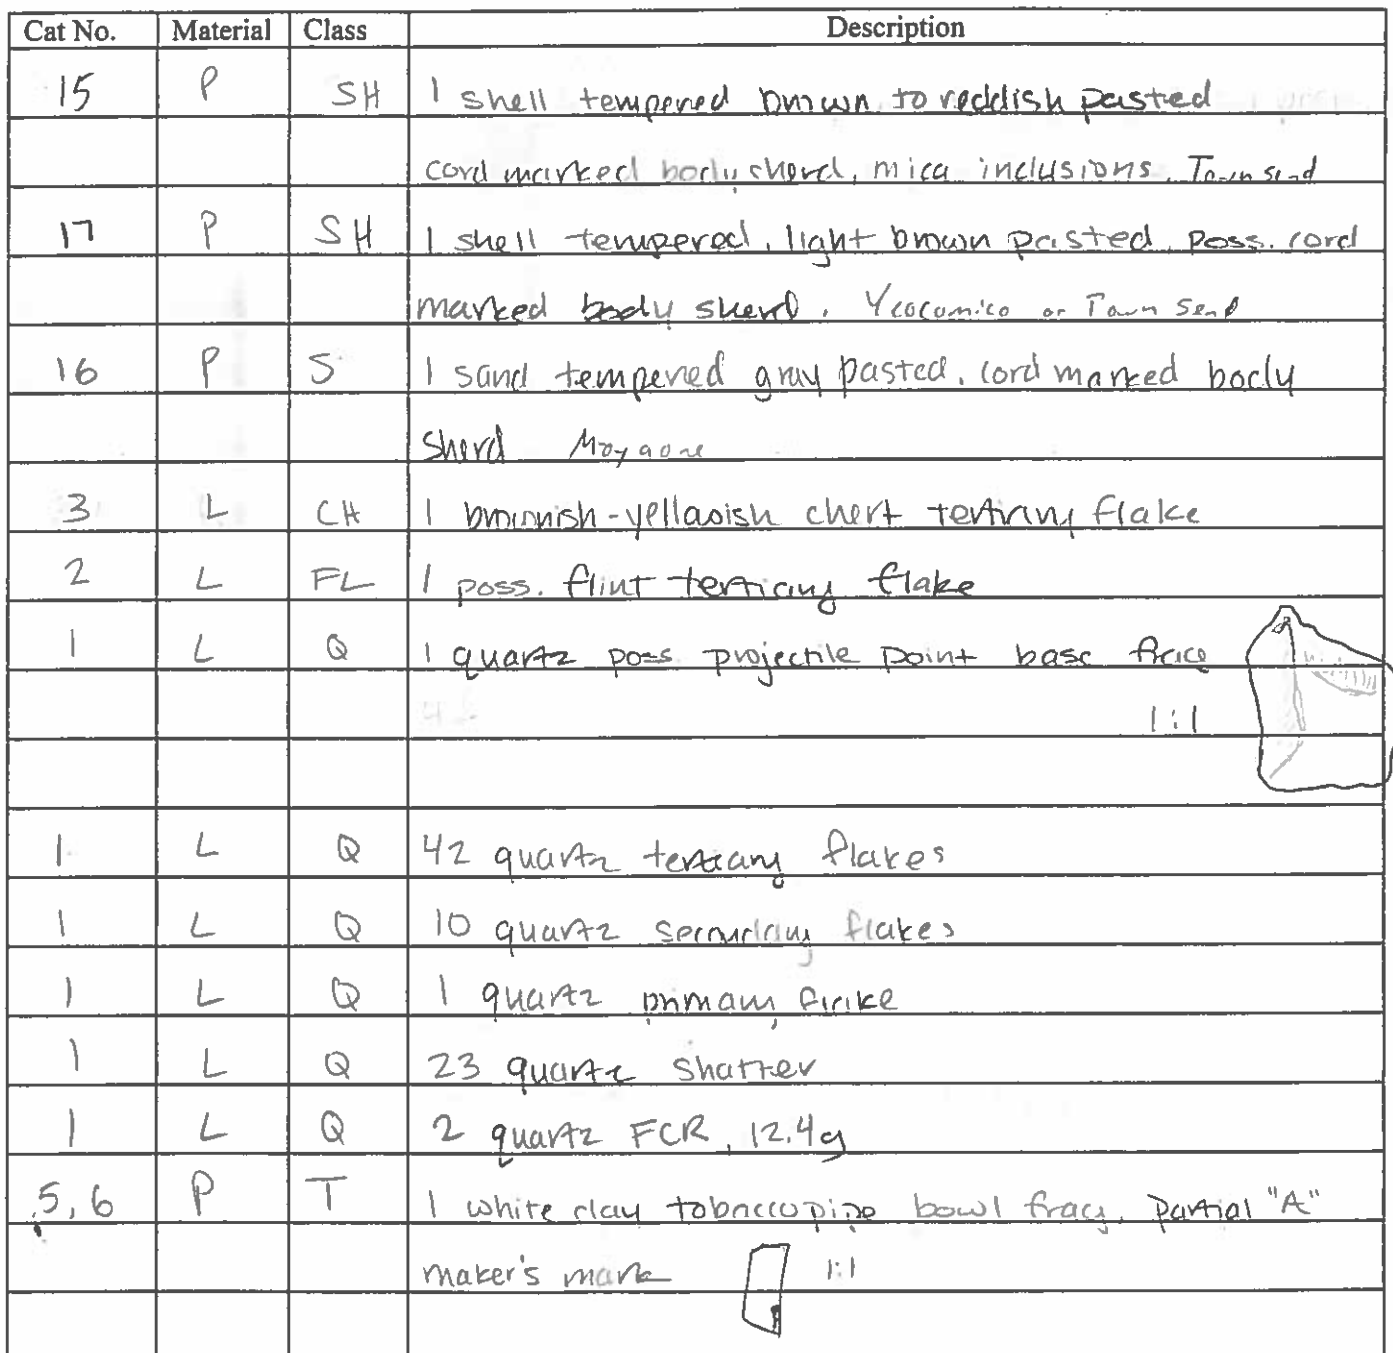 Cat No. Material Class Description
15 P SH 1 shell tempered brown to reddish pasted
cord marked body sherd, mica inclusions. Townsend
17 P SH 1 shell tempered, light brown pasted, poss. cord
marked body sherd. Yeocomico or Townsend
16 P S 1 sand tempered gray pasted, cord marked body
sherd Moyaone
3 L CH 1 brownish-yellowish chert tertiary flake
2 L FL 1 poss. flint tertiary flake
1 L Q 1 quartz poss projectile point base frag
1:1
1 L Q 42 quartz tertiary flakes
1 L Q 10 quartz secondary flakes
1 L Q 1 quartz primary flake
1 L Q 23 quartz shatter
1 L Q 2 quartz FCR, 12.4g
5, 6 P T 1 white clay tobacco pipe bowl frag, partial "A"
maker's mark 1:1